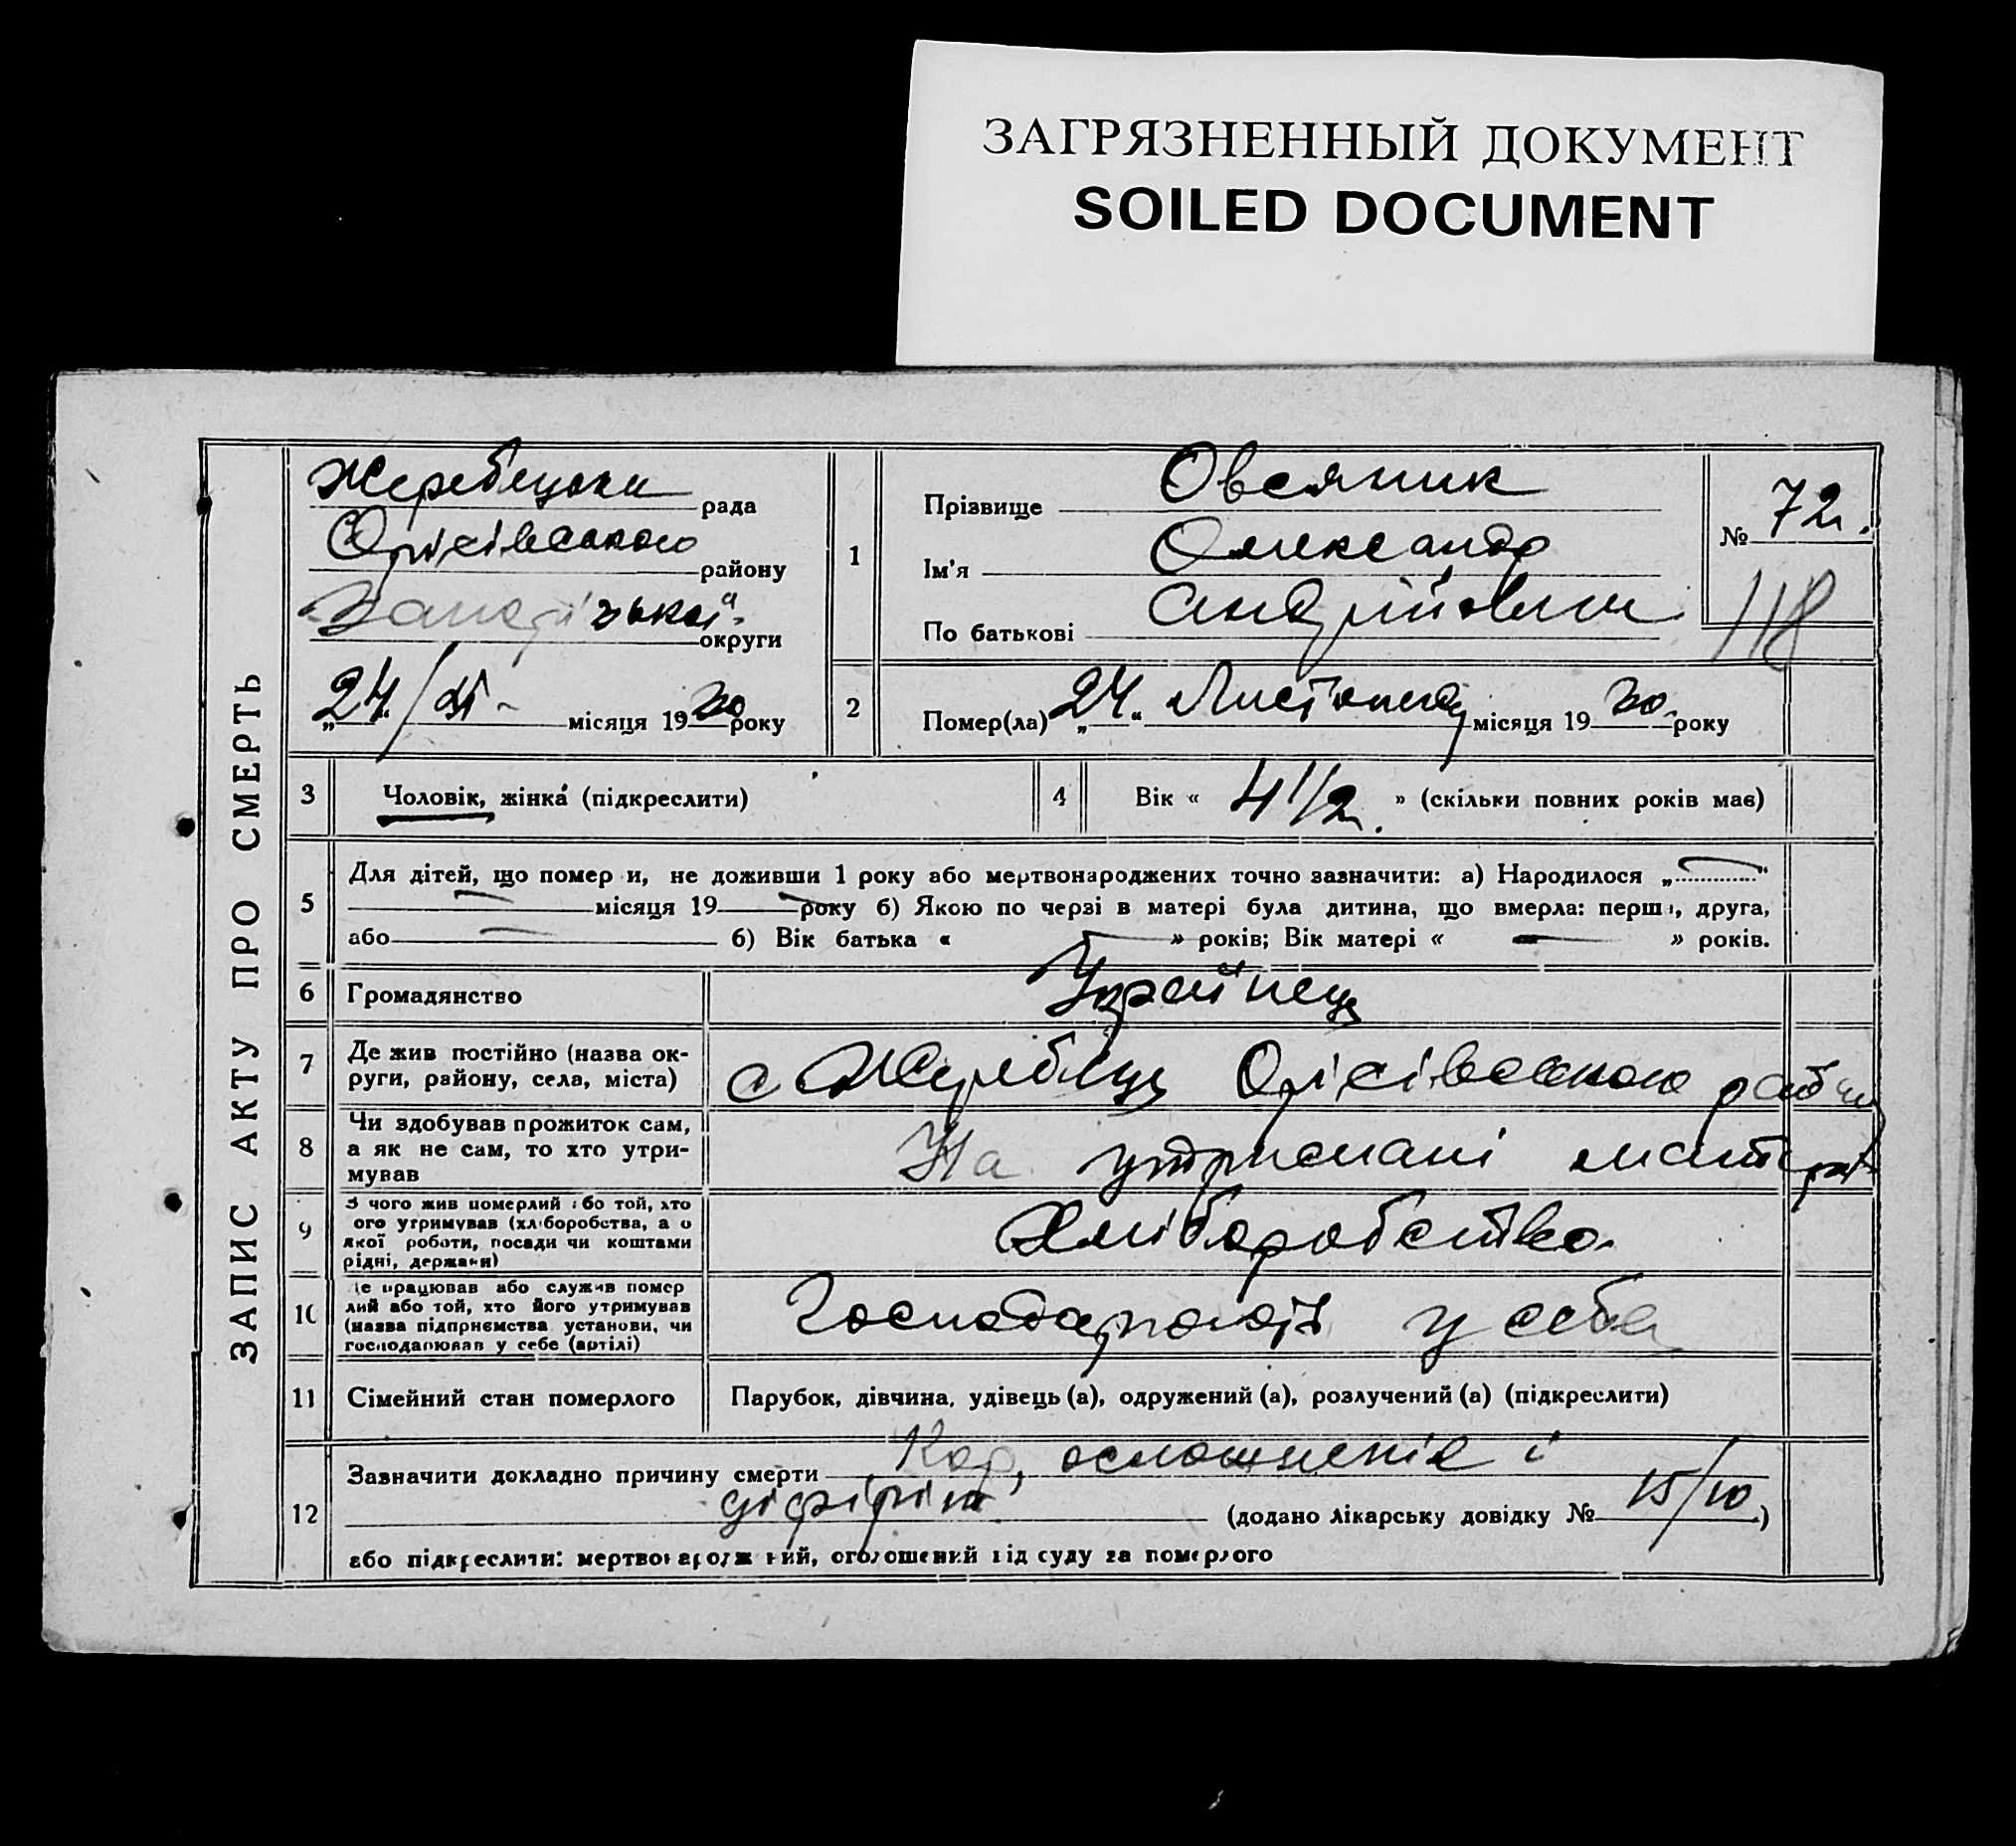 ЗАГРЯЗНЕННЫЙ ДОКУМЕНТ
SOILED DOCUMENT
ЗАПИС АКТУ ПРО СМЕРТЬ
Жеребецька рада
Орісівського району
округи
24/XI- місяця 1930 року
1
Прізвище Овсяник
Ім'я Олександр
По батькові Андрійович
№ 72.
118
2
Помер(ла) „24“ Листопада місяця 1930. року
3 Чоловік, жінка (підкреслити)
4 Вік « 4 1/2. » (скільки повних років має)
5 Для дітей, що помер и, не доживши 1 року або мертвонароджених точно зазначити: а) Народилося „ “
місяця 19 року б) Якою по черзі в матері була дитина, що вмерла: перша, друга,
або б) Вік батька « » років; Вік матері « » років.
6 Громадянство Украінець
7 Де жив постійно (назва ок-
руги, району, села, міста)
с Жеребець Орісівського району
8 Чи здобував прожиток сам,
а як не сам, то хто утри-
мував
На утриманні матері
9 З чого жив померлий або той, хто
ого утримував (хліборобства, а о
якої роботи, посади чи коштами
рідні, держави)
Хліборобство
10 Де працював або служив помер
лий або той, хто його утримував
(назва підприємства установи, чи
господарював у себе (артілі)
Господарюють у себе
11 Сімейний стан померлого Парубок, дівчина, удівець (а), одружений (а), розлучений (а) (підкреслити)
12 Зазначити докладно причину смерти Кор, осложненіе і
діфіріт (додано лікарську довідку № 15/10.)
або підкреслити: мертвонароджений, оголошений від суду за померлого